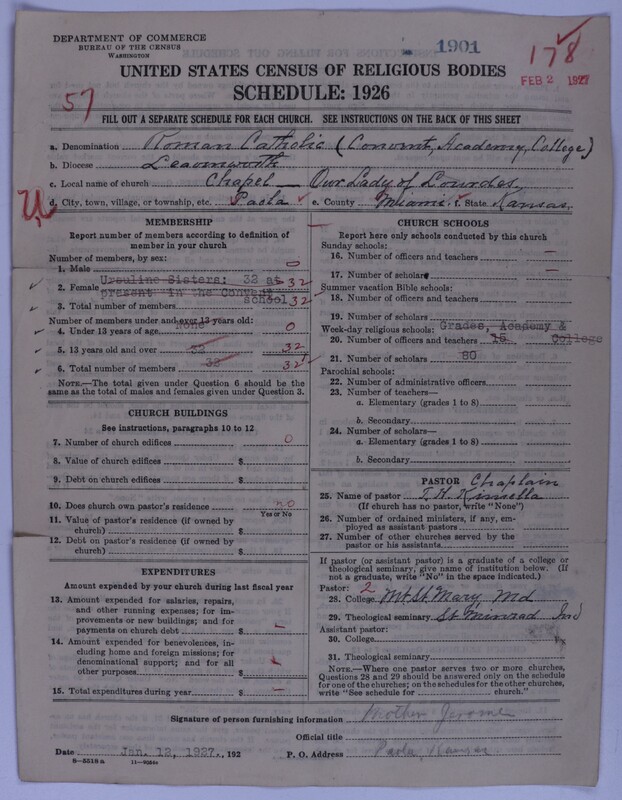 DEPARTMENT OF COMMERCE
BUREAU OF THE CENSUS
WASHINGTON
1901
178
FEB 2 1927
UNITED STATES CENSUS OF RELIGIOUS BODIES
SCHEDULE: 1926
57
FILL OUT A SEPARATE SCHEDULE FOR EACH CHURCH. SEE INSTRUCTIONS ON THE BACK OF THIS SHEET
a. Denomination Roman Catholic (Convent, Academy, College)
b. Diocese Leavenworth
c. Local name of church Chapel — Our Lady of Lourdes
d. City, town, village, or township, etc. Paola e. County Miami f. State Kansas
MEMBERSHIP
Report number of members according to definition of
member in your church
Number of members, by sex:
1. Male 0
2. Female Ursuline Sisters: 32 at 32
present in the Convent
school
3. Total number of members 32
Number of members under and over 13 years old:
4. Under 13 years of age None 0
5. 13 years old and over 32 32
6. Total number of members 32 32
NOTE.—The total given under Question 6 should be the
same as the total of males and females given under Question 3.
CHURCH BUILDINGS
See instructions, paragraphs 10 to 12
7. Number of church edifices 0
8. Value of church edifices $
9. Debt on church edifices $
10. Does church own pastor's residence no
Yes or No
11. Value of pastor's residence (if owned by
church) $
12. Debt on pastor's residence (if owned by
church) $
EXPENDITURES
Amount expended by your church during last fiscal year
13. Amount expended for salaries, repairs,
and other running expenses; for im-
provements or new buildings; and for
payments on church debt $ —
14. Amount expended for benevolences, in-
cluding home and foreign missions; for
denominational support; and for all
other purposes $
15. Total expenditures during year $ —
CHURCH SCHOOLS
Report here only schools conducted by this church
Sunday schools:
16. Number of officers and teachers —
17. Number of scholars —
Summer vacation Bible schools:
18. Number of officers and teachers
19. Number of scholars
Week-day religious schools: Grades, Academy &
College
20. Number of officers and teachers 15
21. Number of scholars 80
Parochial schools:
22. Number of administrative officers
23. Number of teachers—
a. Elementary (grades 1 to 8)
b. Secondary
24. Number of scholars—
a. Elementary (grades 1 to 8)
b. Secondary
PASTOR Chaplain
25. Name of pastor T. H. Kinsella
(If church has no pastor, write "None")
26. Number of ordained ministers, if any, em-
ployed as assistant pastors
27. Number of other churches served by the
pastor or his assistants
If pastor (or assistant pastor) is a graduate of a college or
theological seminary, give name of institution below. (If
not a graduate, write "No" in the space indicated.)
Pastor: 2
28. College Mt St Mary Md
29. Theological seminary St Meinrad Ind
Assistant pastor:
30. College
31. Theological seminary
NOTE.—Where one pastor serves two or more churches,
Questions 28 and 29 should be answered only on the schedule
for one of the churches; on the schedules for the other churches,
write "See schedule for church."
Signature of person furnishing information Mother Jerome
Official title
Date Jan. 12, 1927. , 192 P. O. Address Paola, Kansas
8—5518a 11—9206